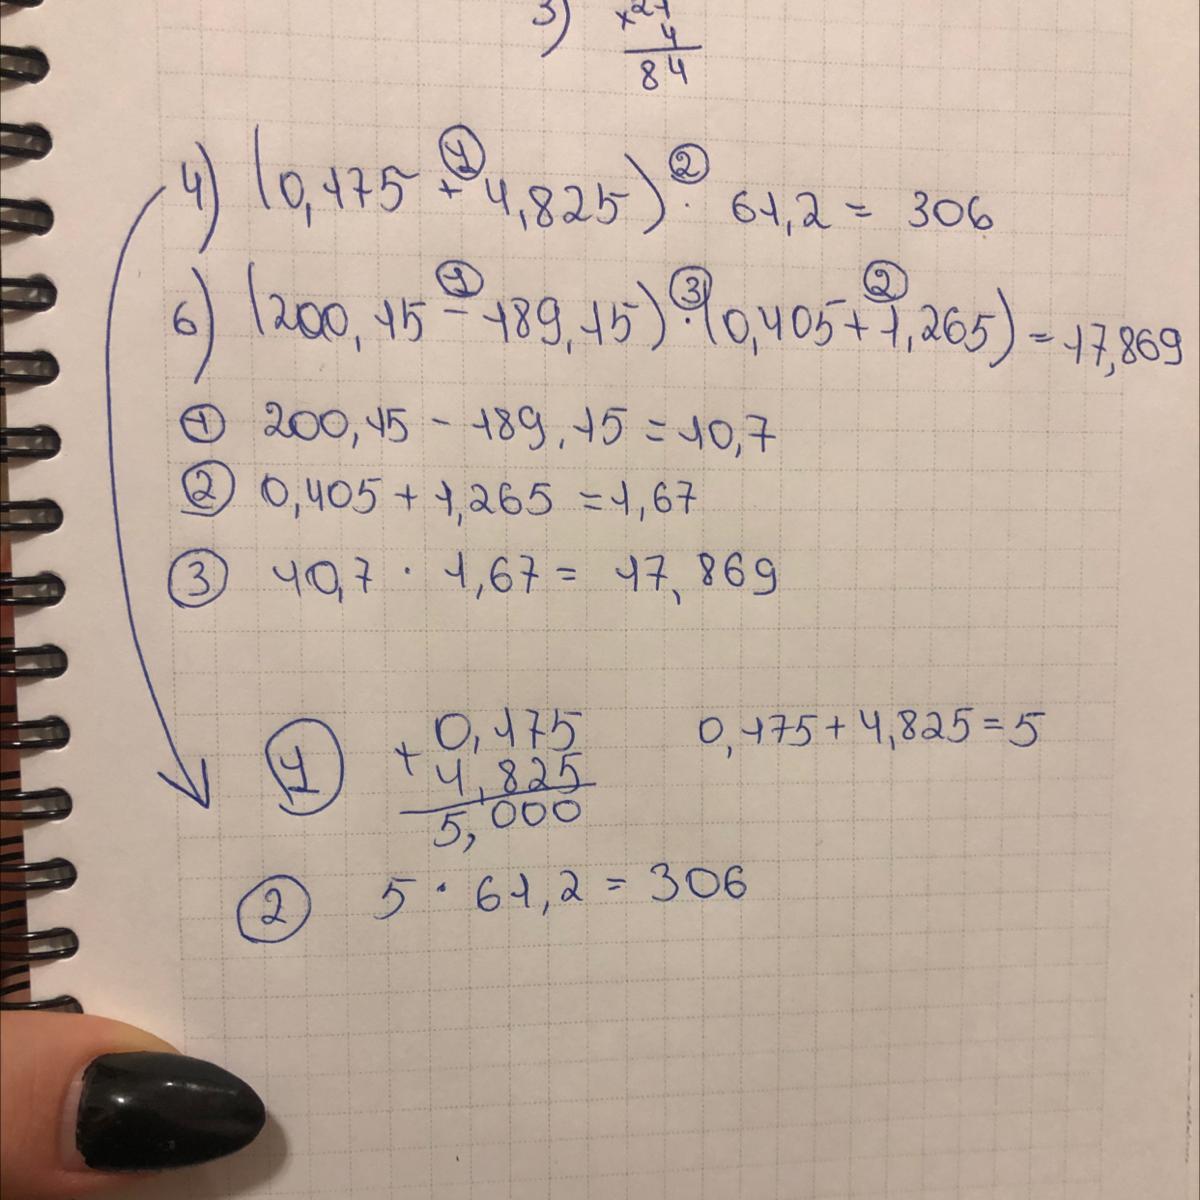 3) ×21
4
84
4) (0,175 + 4,825) · 61,2 = 306
6) (200,15 - 189,15) · (0,405 + 1,265) = 17,869
① 200,15 - 189,15 = 10,7
② 0,405 + 1,265 = 1,67
③ 10,7 · 1,67 = 17,869
① + 0,175 0,175 + 4,825 = 5
4,825
5,000
② 5 · 61,2 = 306